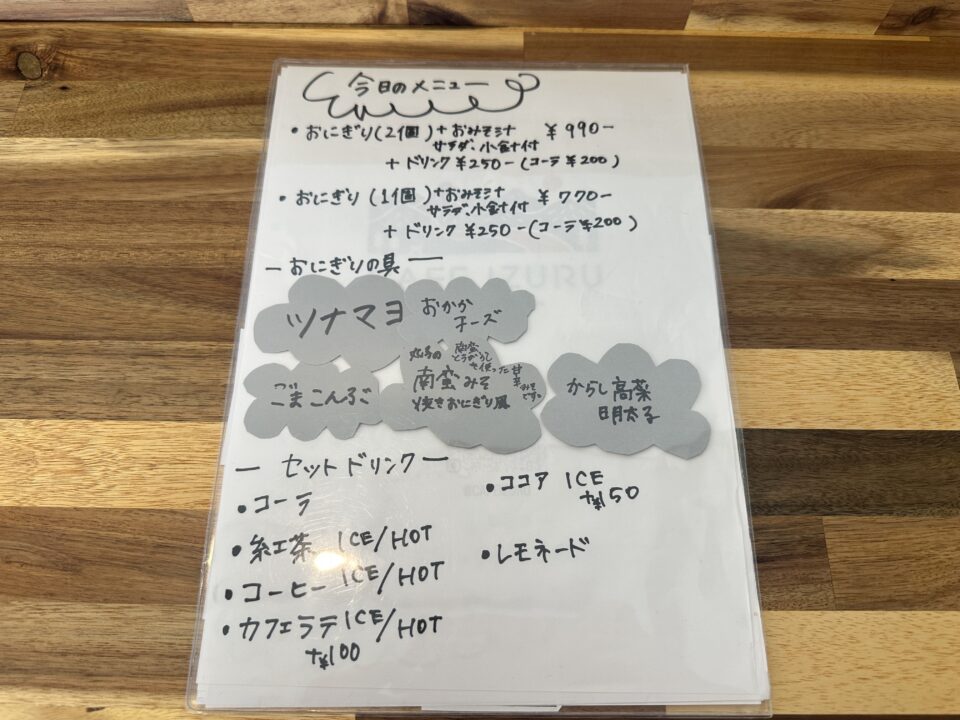 今日のメニュー
・おにぎり(2個)+おみそ汁 ¥990-
サラダ、小鉢付
+ドリンク¥250-(コーラ¥200)
・おにぎり(1個)+おみそ汁 ¥770-
サラダ、小鉢付
+ドリンク¥250-(コーラ¥200)
ーおにぎりの具ー
ツナマヨ
おかか
チーズ
ごまこんぶ
南蛮
とうがらし
を使った
甘辛
みそ
です。
南蛮みそ
焼きおにぎり風
からし高菜
明太子
ーセットドリンクー
・コーラ
・紅茶 ICE/HOT
・コーヒー ICE/HOT
・カフェラテ ICE/HOT
+¥100
・ココア ICE
+¥150
・レモネード
CAFE IZURU